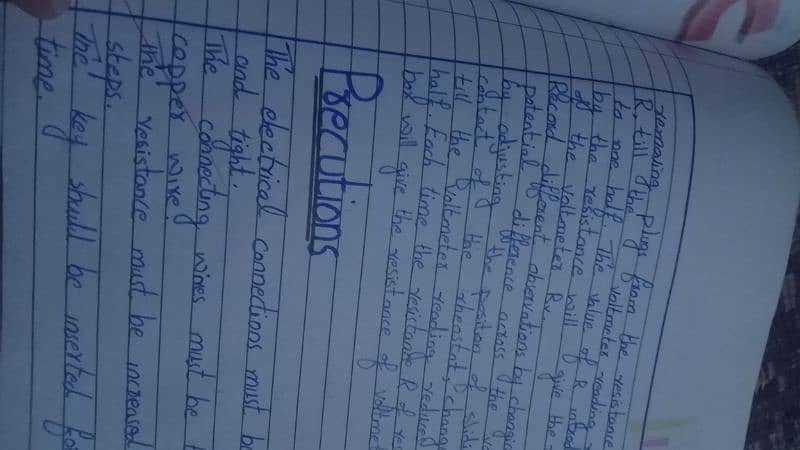 remaing plugs from the resistance
R, till the
to one half. The voltmeter reading
by the resistance value of R introd
of the voltmeter Rv will give the
Record different observations by changi
potential difference across the vo
by adjusting the position of slidi
contact of the rheostat, change
till the voltmeter reading reduces
half. Each time the resistance R of res
box will give the resistance of voltmet
Precutions
The electrical connections must be
and tight.
The connecting wires must be
copper wire.
The resistance must be increased
steps.
The key should be inserted for
time.